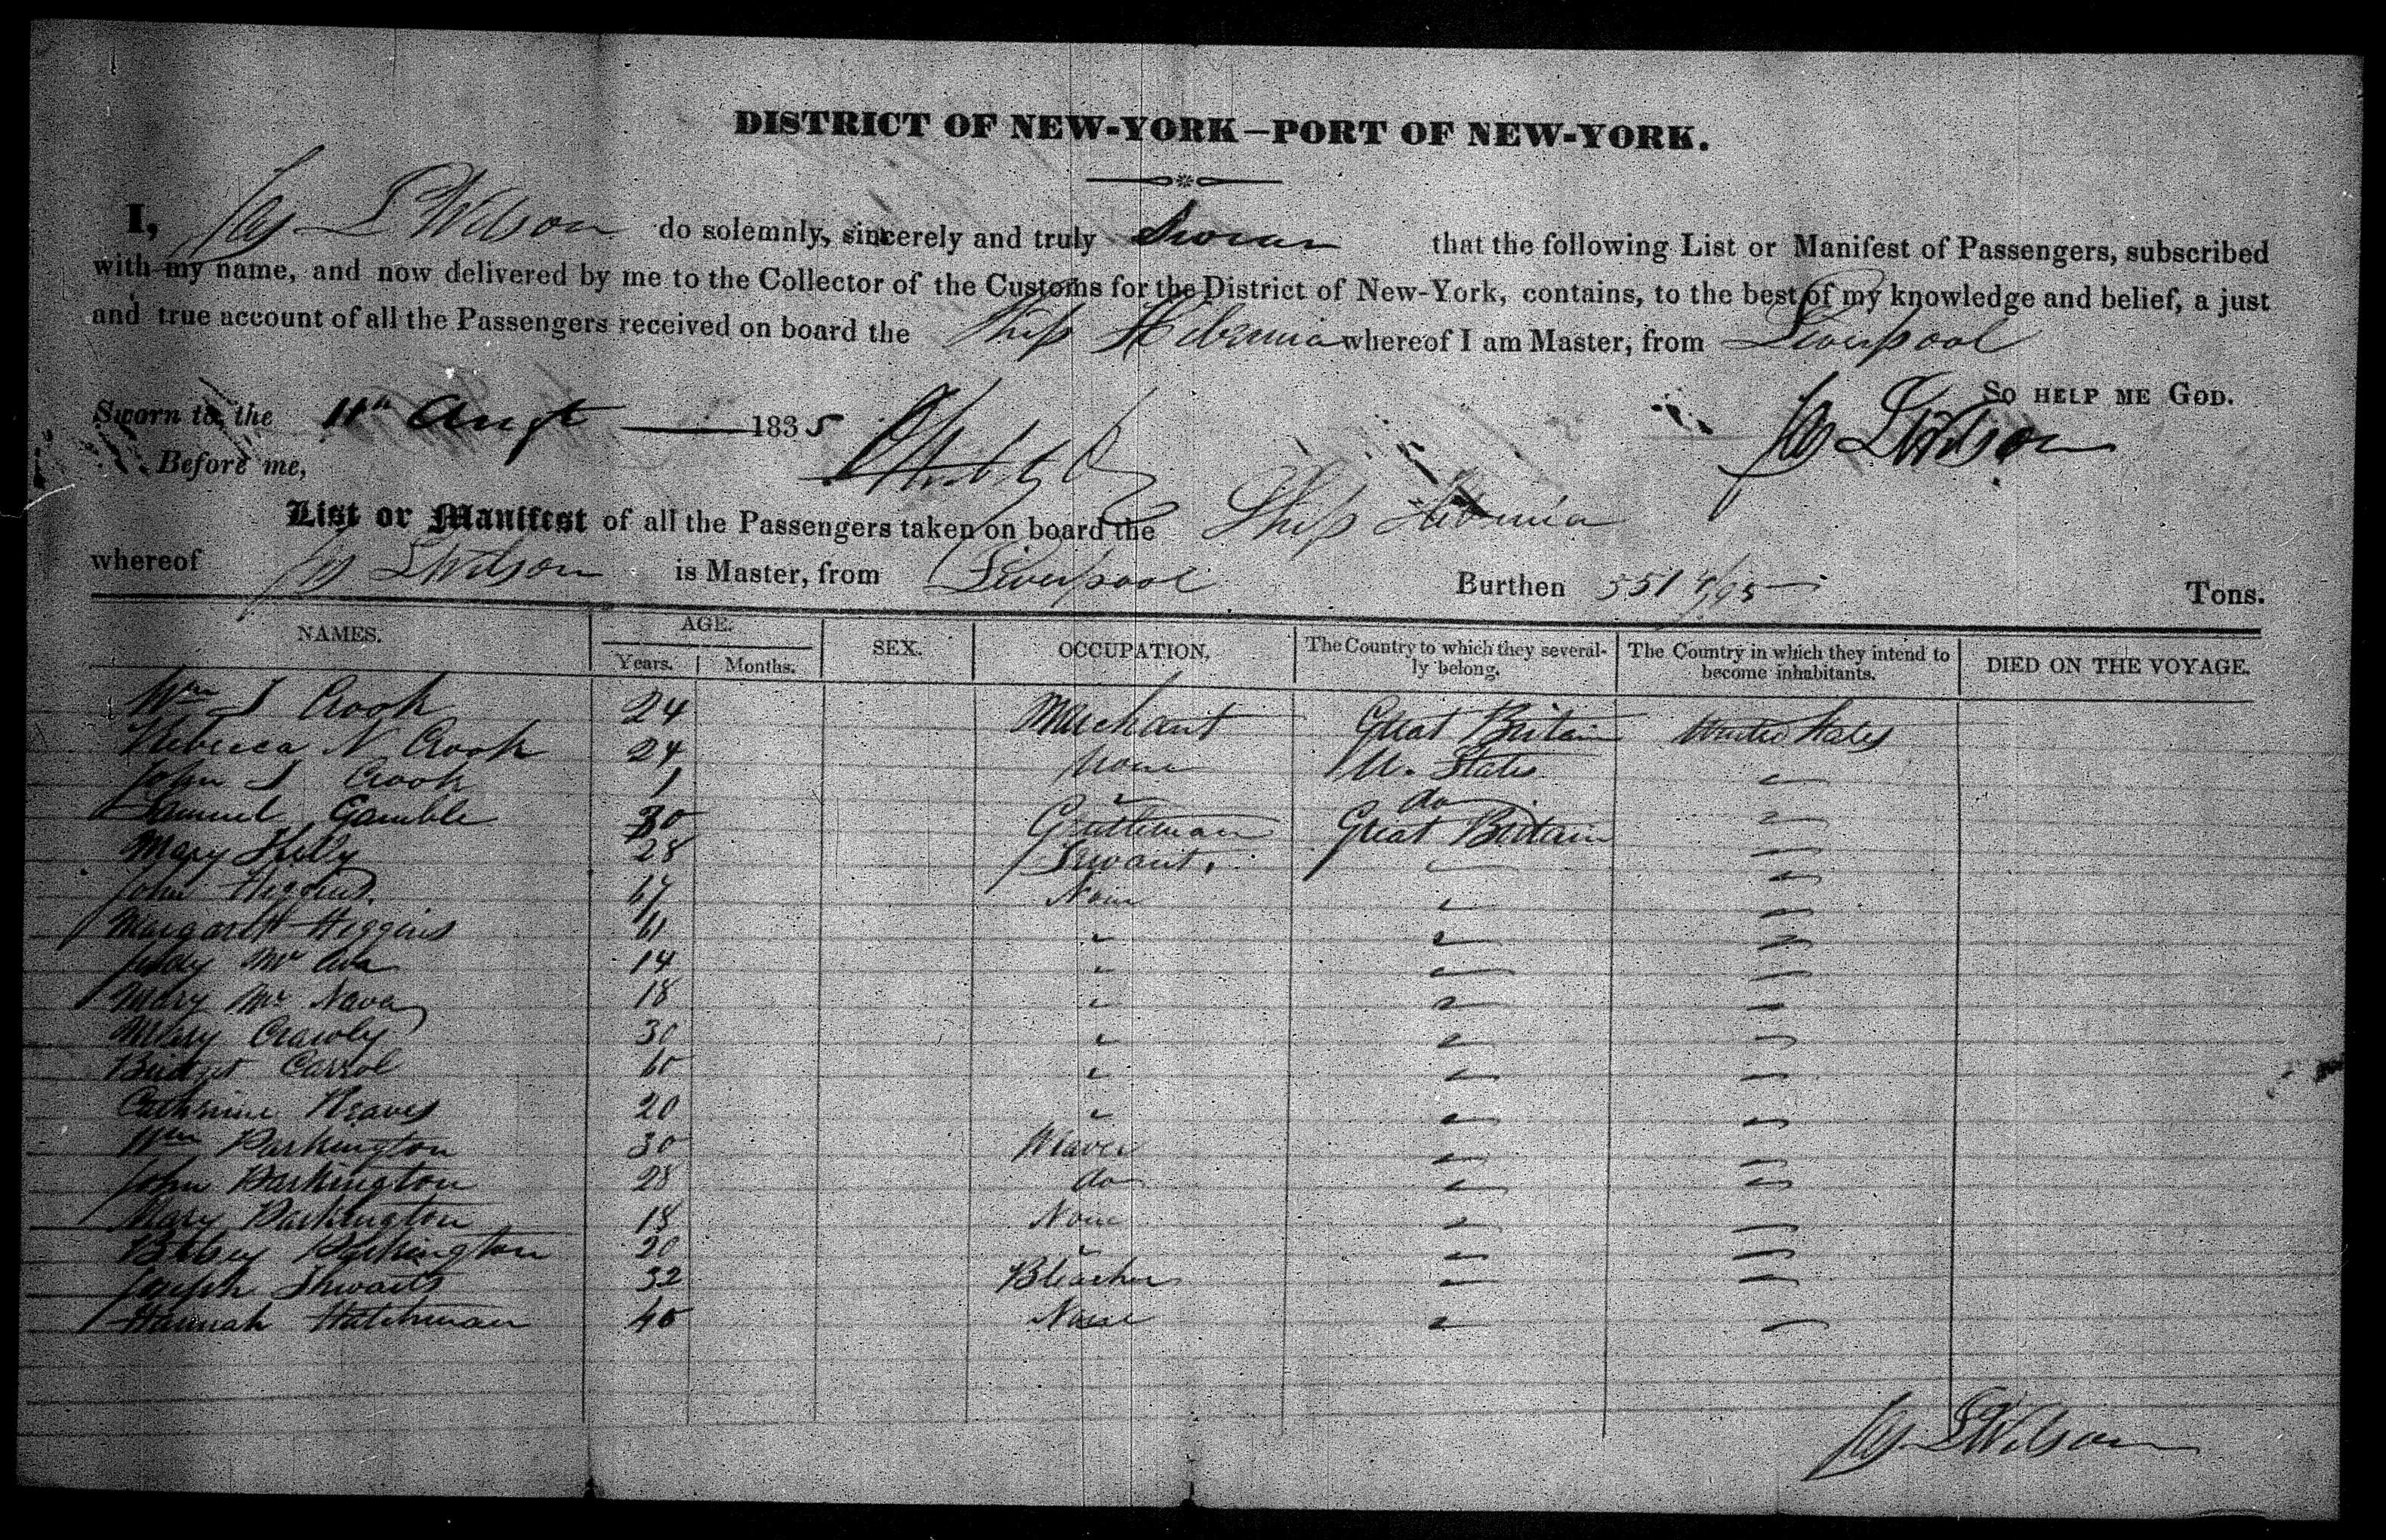 DISTRICT OF NEW-YORK—PORT OF NEW-YORK.
I, Jas L Wilson do solemnly, sincerely and truly Swear that the following List or Manifest of Passengers, subscribed
with my name, and now delivered by me to the Collector of the Customs for the District of New-York, contains, to the best of my knowledge and belief, a just
and true account of all the Passengers received on board the Ship Hibernia whereof I am Master, from Liverpool
SO HELP ME GOD.
Sworn to, the 11th Augt 1835 Jas L Wilson
Before me,
List or Manifest of all the Passengers taken on board the Ship Hibernia
whereof Jas L Wilson is Master, from Liverpool Burthen 551 Tons.
NAMES. AGE. SEX. OCCUPATION. The Country to which they several- The Country in which they intend to DIED ON THE VOYAGE.
Years. Months. ly belong. become inhabitants.
Wm J Crook 24 Merchant Great Britain United States
Rebecca N Crook 24 None U. States "
John J Crook 1 " do "
Samuel Gamble 30 Gentleman Great Britain "
Mary Kelly 28 Servant. " "
John Higgins 67 None " "
Margarett Higgins 61 " " "
Judy Mc 14 " " "
Mary Mc Nava 18 " " "
Mary Crawly 30 " " "
Bridget Carrol 60 " " "
Cathrine Neaves 20 " " "
Wm Parkington 30 Weaver " "
John Parkington 28 do " "
Mary Parkington 18 None " "
Betsey Parkington 20 " " "
Joseph Thwaits 32 Bleacher " "
Hannah Hutchman 40 None " "
Jas L Wilson